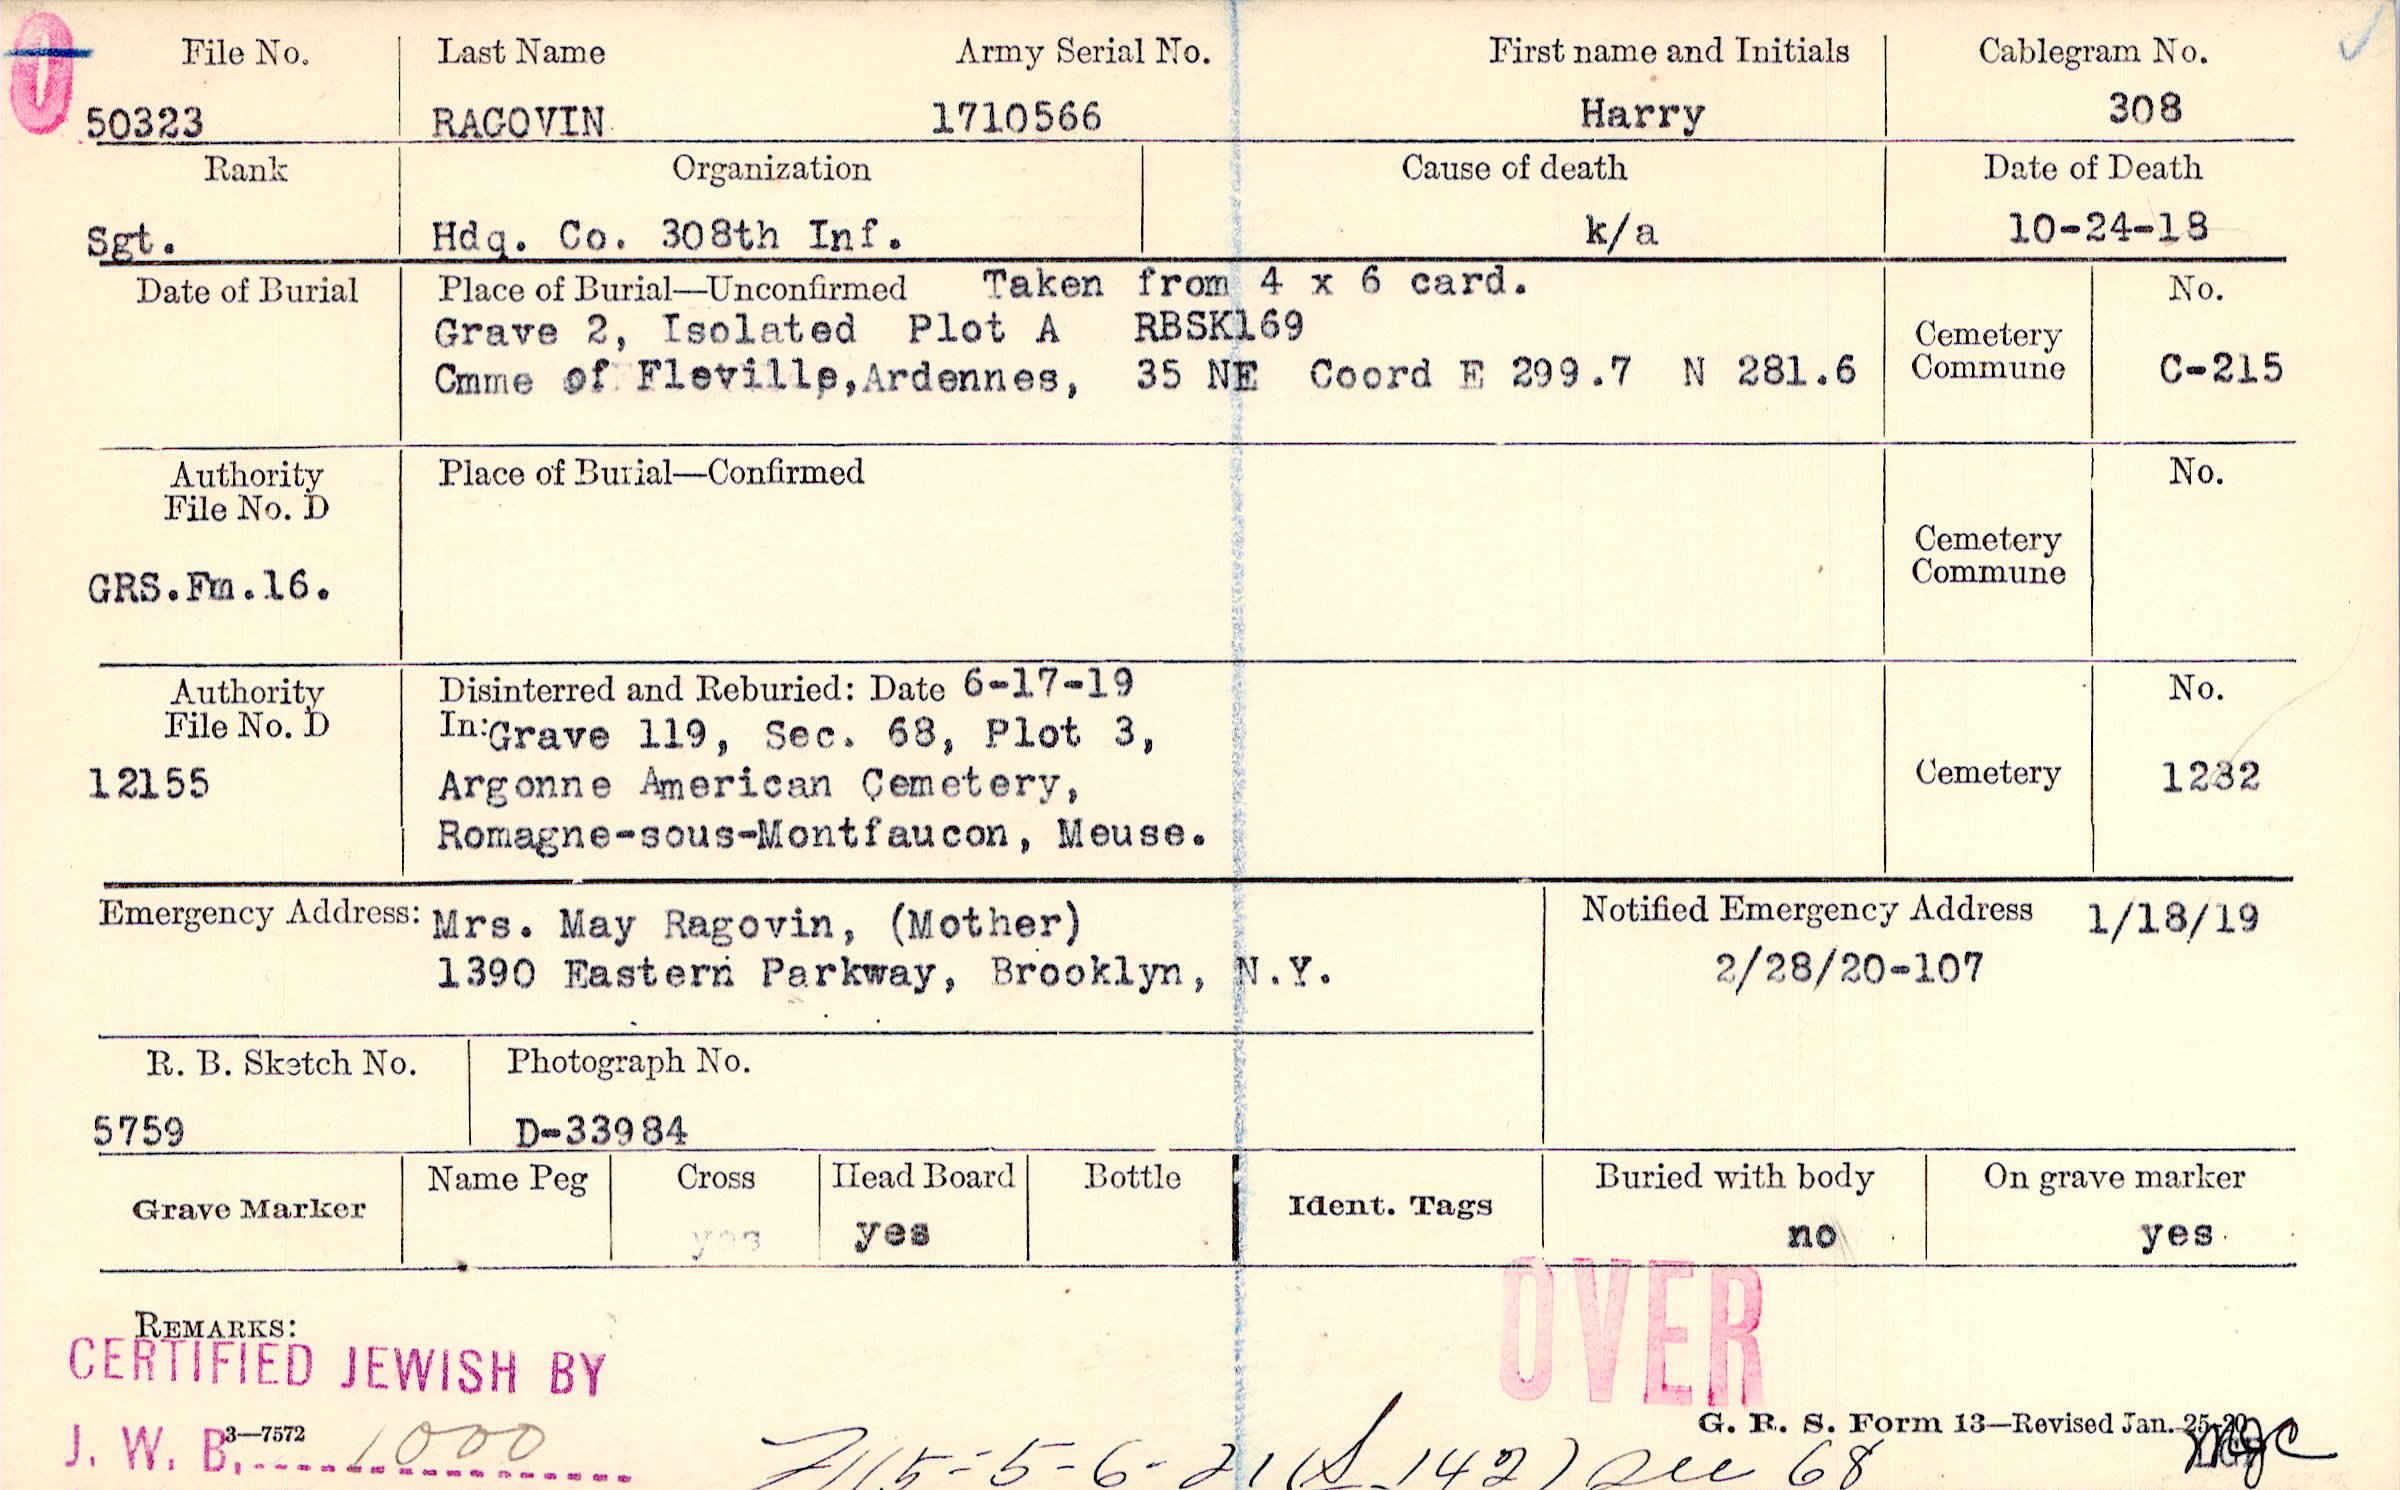 File No. Last Name Army Serial No. First name and Initials Cablegram No.
50323 RAGOVIN 1710566 Harry 308
Rank Organization Cause of death Date of Death
Sgt. Hdq. Co. 308th Inf. k/a 10-24-18
Date of Burial Place of Burial—Unconfirmed Taken from 4 x 6 card. No.
Grave 2, Isolated Plot A RBSK169
Cmme of Fleville, Ardennes, 35 NE Coord E 299.7 N 281.6 Cemetery Commune C-215
Authority File No. D Place of Burial—Confirmed No.
GRS.Fm.16. Cemetery Commune
Authority File No. D Disinterred and Reburied: Date 6-17-19 No.
In: Grave 119, Sec. 68, Plot 3,
12155 Argonne American Cemetery, Cemetery 1232
Romagne-sous-Montfaucon, Meuse.
Emergency Address: Mrs. May Ragovin, (Mother) Notified Emergency Address 1/18/19
1390 Eastern Parkway, Brooklyn, N.Y. 2/28/20-107
R. B. Sketch No. Photograph No.
5759 D-33984
Grave Marker Name Peg Cross Head Board Bottle Ident. Tags Buried with body On grave marker
yes yes no yes
OVER
REMARKS:
CERTIFIED JEWISH BY
G. R. S. Form 13—Revised Jan. 25-20
J. W. B. 3—7572 1000